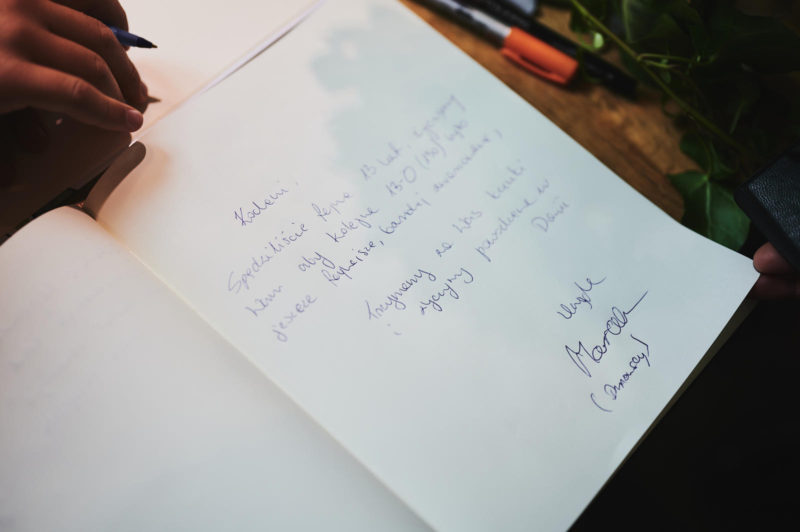 Kochani,
Spędziliście fajne 13 lat, życzymy
Wam aby kolejne 13-0 (130) było
jeszcze fajniejsze, bardziej
Trzymamy za Was kciuki
i życzymy powodzenia w
Danii
Magda
Marcel